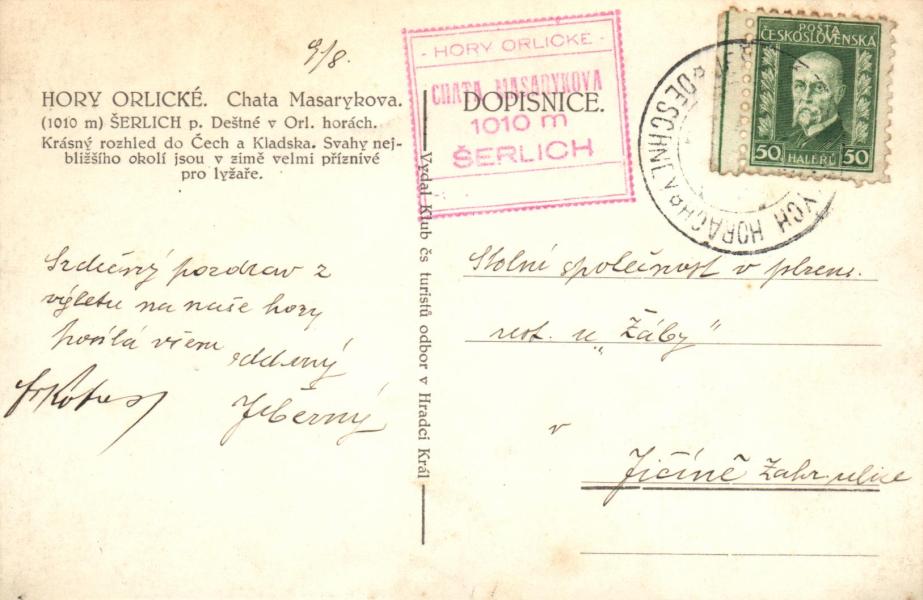 9/8.
HORY ORLICKÉ. Chata Masarykova.
(1010 m) ŠERLICH p. Deštné v Orl. horách.
Krásný rozhled do Čech a Kladska. Svahy nej-
bližšího okolí jsou v zimě velmi příznivé
pro lyžaře.
Srdečný pozdrav z
výletu na naše hory
posílá všem oddaný
JČerný
Vydal Klub čs turistů odbor v Hradci Král
- HORY ORLICKÉ -
CHATA MASARYKOVA
1010 m
ŠERLICH
DOPISNICE.
POŠTA
ČESKOSLOVENSKÁ
50 HALÉŘŮ 50
DESCHNEI
ÝCH HORÁCH
Stolní společnost v plzeni.
rest. u „Žáby"
v
Jičíně Zahr. ulice